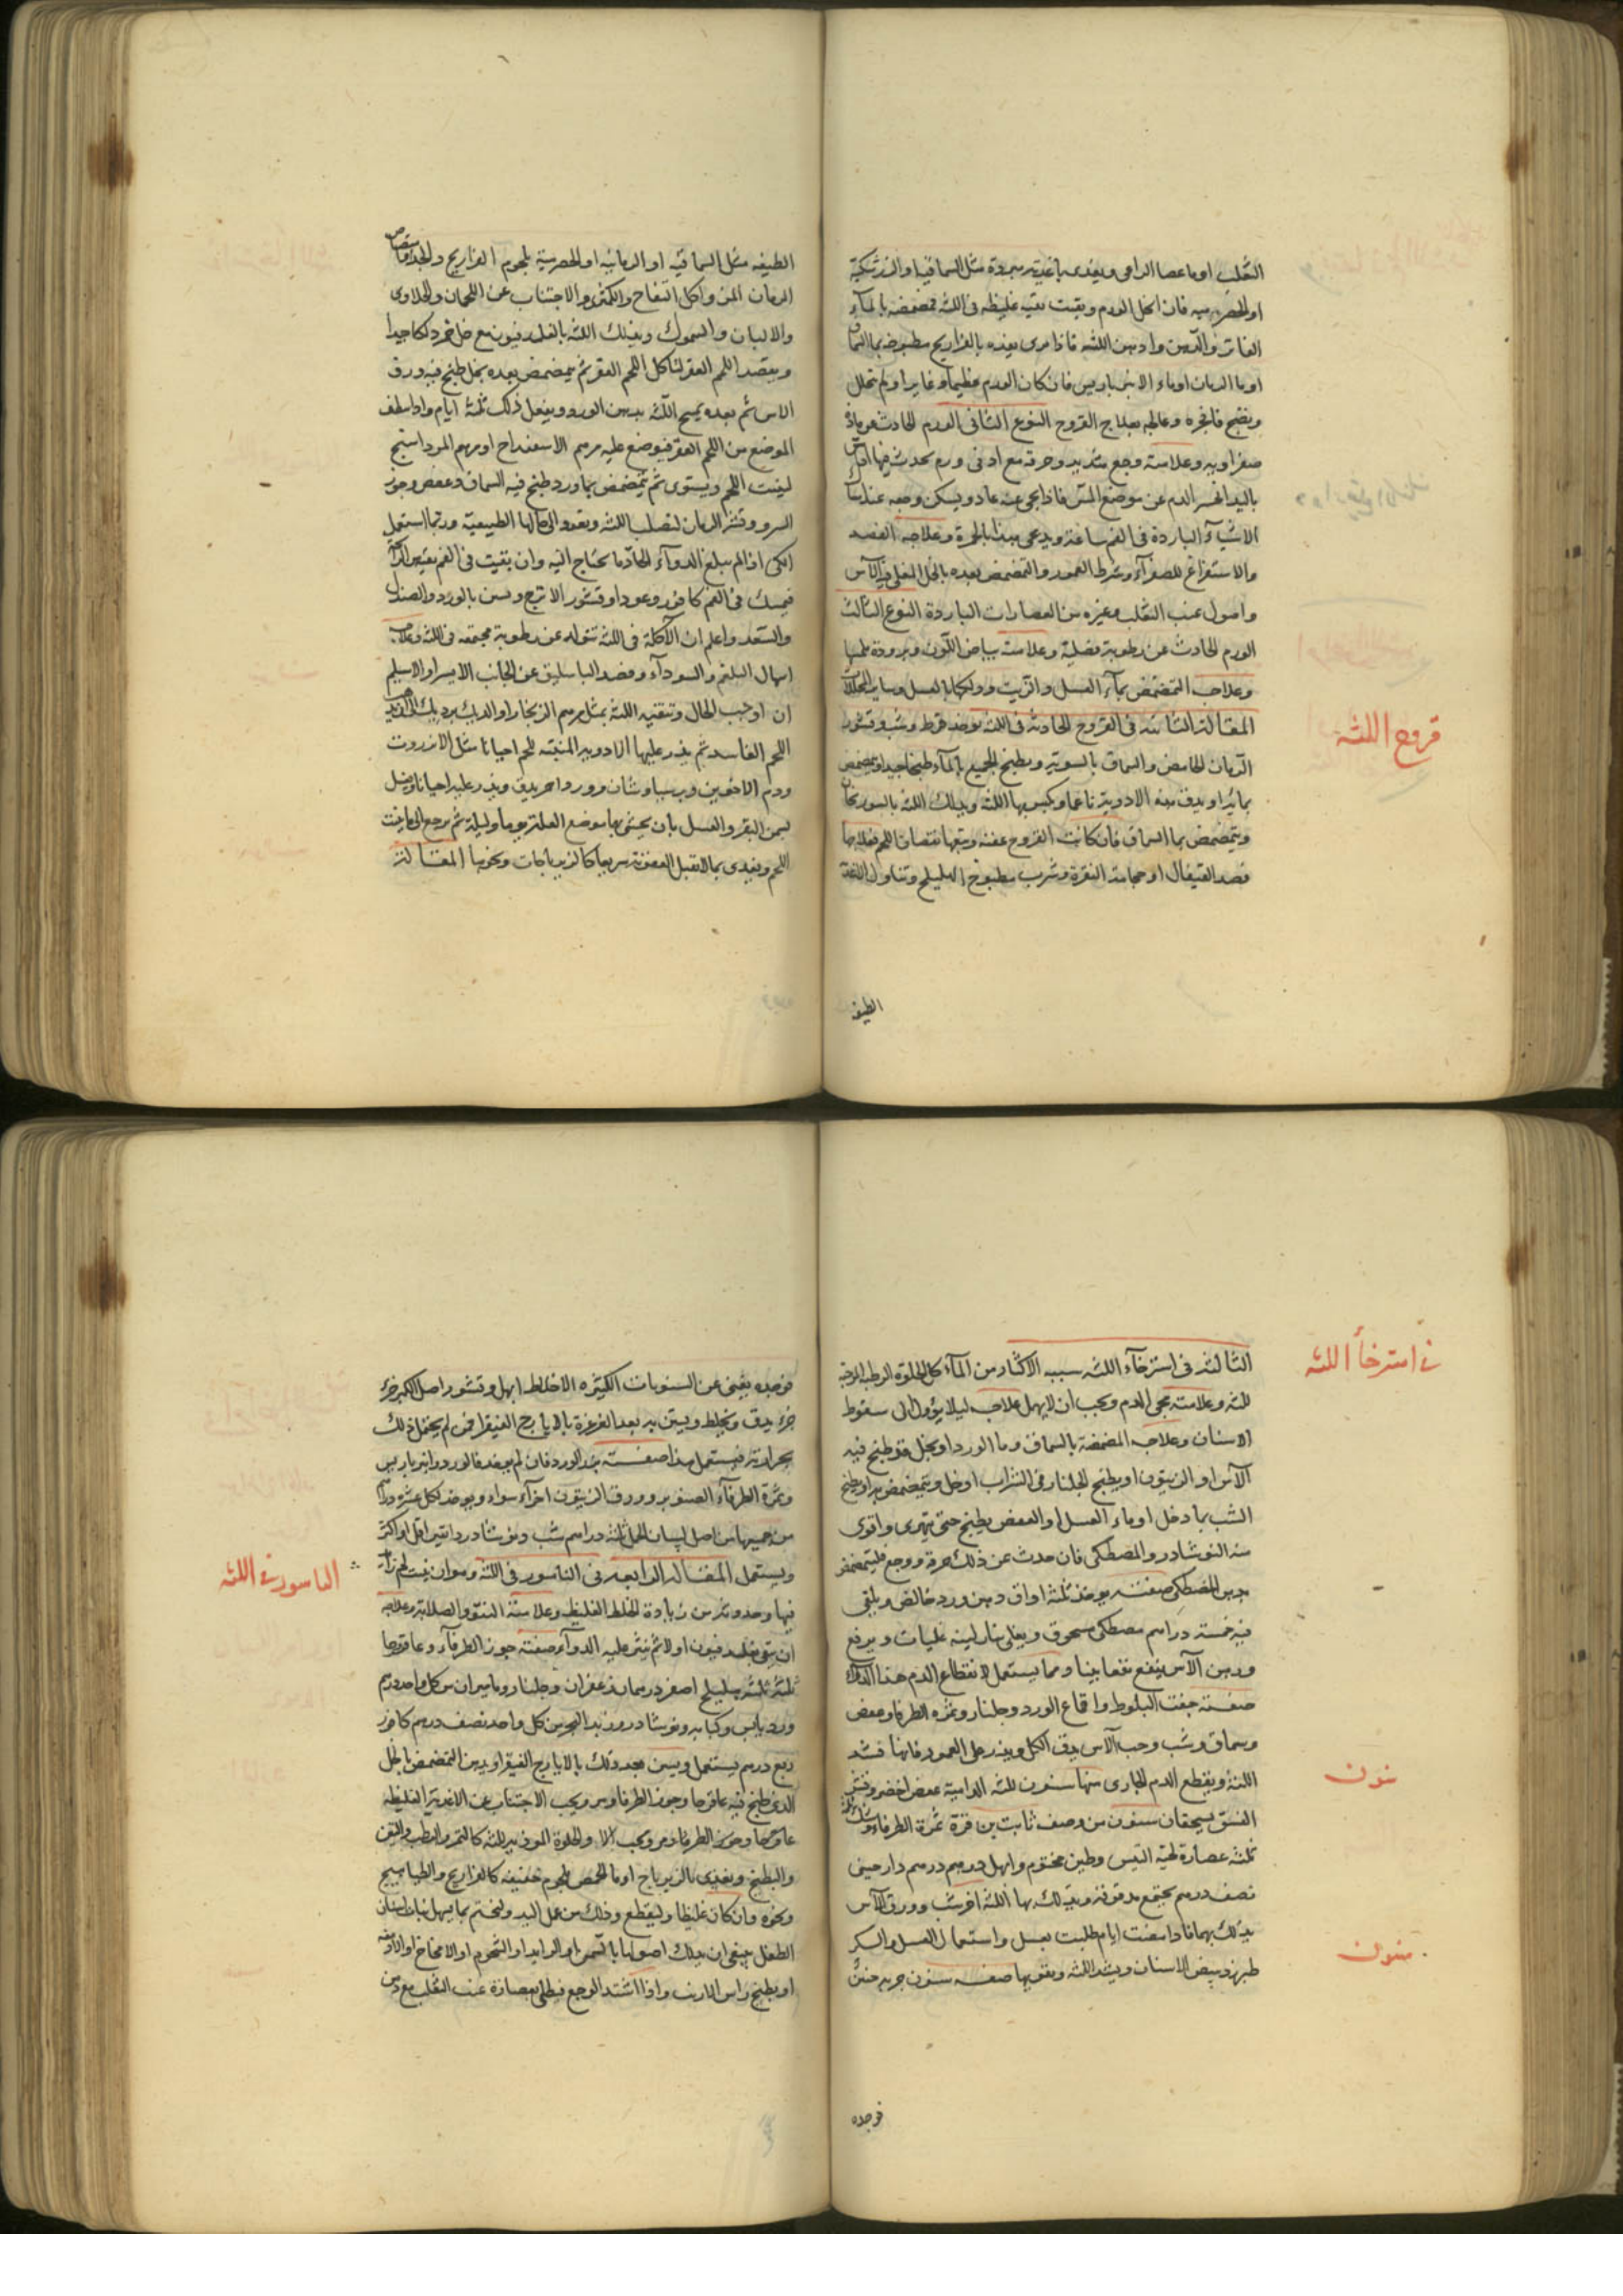 الثعلب او ماء عصا الراعى ويغذى باغذية مبردة مثل السماقية والزرشكية
او الحصرمية فان انحل الورم وبقيت بقية غليظة فى اللثة فمضمضه بالماء
الفاتر والدهن وادهن اللثة فاذا مرى يغذيه بالفراريج مطبوخة بماء السماق
او ماء الرمان او ماء الانبرباريس فان كان الورم عظيما وغايرا ولم يتحلل
ونضج فافجره وعالجه بعلاج القروح النوع الثانى الورم الحادث عن مادة
صفراوية وعلامته وجع شديد وحرقة مع ادنى ورم يحدث فيها اذا مس
باليد انحسر الدم عن موضع المس فاذا نحى عنه عاد ويسكن وجعه عند امساك
الاشياء الباردة فى الفم ساعة ويدعى هذا بالحمرة وعلاجه الفصد
والاستفراغ للصفراء وشرط العمور والتمضمض بعده بالخل المغلى فيه الآس
واصول عنب الثعلب وغيره من العصارات الباردة النوع الثالث
الورم الحادث عن رطوبة فضلية وعلامته بياض اللون وبرودة لمسها
وعلاجه التمضمض بماء العسل والزيت ودلكها بالعسل وساير المحللات
المقالة الثانية فى القروح الحادثة فى اللثة يوخذ قرط وشب وقشور
قروح اللثة
الرمان الحامض والسماق بالسوية ويطبخ الجميع بالماء طبخا جيدا ويتمضمض
بمائه او يدق هذه الادوية ناعما ويكبس بها اللثة ويدلك اللثة بالسورنجان
ويتمضمض بماء السماق فان كانت القروح عفنة ويتبعها نقصان اللحم فعلاجها
فصد القيفال او حجامة النقرة وشرب مطبوخ الهليلج وتناول الاغذية
الطيفه
الطيفه مثل السماقية او الرمانية او الحصرمية بلحوم الفراريج والجدا وامتصاص
الرمان المز واكل التفاح والكمثرى والاجتناب عن اللحمان والحلاوى
والالبان والسموك ويدلك اللثة بالفلدفيون مع خل خمر دلكا جيدا
ويقصد اللحم العفن لتاكل اللحم العفن ثم يتمضمض بعده بخل طبخ فيه ورق
الاس ثم بعده يمسح اللثة بدهن الورد ويفعل ذلك ثلثة ايام واذا نظف
الموضع من اللحم العفن فيوضع عليه مرهم الاسفيداج او مرهم المرداسنج
لينبت اللحم ويستوى ثم يتمضمض بماء ورد طبخ فيه السماق وعفص وجوز
السرو وقشر الرمان لتصلب اللثة وتعود الى حالها الطبيعية وربما استعمل
الكى اذا لم يبلغ الدواء الحاد ما يحتاج اليه وان بقيت فى الفم بقية من الرائحة
فيمسك فى الفم كافور وعود او قشور الاترج ويسن بالورد والصندل
والسعد واعلم ان الآكلة فى اللثة تتولد عن رطوبة مجتمعة فى اللثة وعلاجه
اسهال البلغم والسوداء وفصد الباسليق عن الجانب الايسر او الاسيلم
ان اوجب الحال وتنقية اللثة بمثل مرهم الزنجار او الديك برديك
اللحم الفاسد ثم يذر عليها الادوية المنبتة للحم احيانا مثل الانزروت
ودم الاخوين وبرسياوشان وورد احمر يدق ويذر عليه احيانا ويغسل
بسمن البقر والعسل بان يحشى بها موضع العلة يوما وليلة ثم يرجع الى ما ينبت
اللحم ويغذى بما لا يقبل العفونة سريعا كالزيرباجات ونحوها المقالة
فى استرخاء اللثة
الثالثة فى استرخاء اللثة سببه الاكثار من الماء كل الحلوة الرطبة المرخية
للثة وعلامته مجى الدم ويجب ان لا يهمل علاجه ليلا يؤول الى سقوط
الاسنان وعلاجه المضمضة بالسماق وماء الورد او بخل قد طبخ فيه
الآس او الزيتون او يطبخ الجلنار فى الشراب او خل ويتمضمض به او يطبخ
الشب بماء دخل او ماء العسل او العفص يطبخ حتى يتهرى واقوى
منه النوشادر والمصطكى فان حدث عن ذلك حرقة ووجع فليتمضمض
بدهن المصطكى صفته يوخذ ثلثة اواق دهن ورد خالص ويلقى
فيه خمسة دراهم مصطكى مسحوق ويغلى بنار لينة غليات ويرفع
ودهن الآس ينفع نفعا بينا ومما يستعمل لانقطاع الدم هذا الدواء
صفته جفت البلوط واقماع الورد وجلنار وثمرة الطرفا وعفص
وسماق وشب وحب الآس يدق الكل ويذر على العمور فانها تشد
سنون
اللثة ويقطع الدم الجارى منها سنون للثة الدامية عفص اخضر وقشر
الفستق يسحقان سنون من وصف ثابت بن قرة ثمرة الطرفاء
ثلثة عصارة لحية التيس وطين مختوم وابهل درهم درهم دارصينى
نصف درهم يجتمع مدقوقة ويدلك بها اللثة اخر شب وورق الآس
سنون
يدلك بهما فاذا مضت ايام طليت بعسل واستعمال العسل والسكر
طبرزد يبيض الاسنان ويشد اللثة ويقويها صفة سنون جربه حنين
فوجده
فوجده يغنى عن السنونات الكثيرة الاخلاط ابهل وقشور اصل الكبر جزء
جزء يدق ويخلط ويستن به بعد الغرغرة بالايارج الفيقرا فمن لم يحتمل ذلك
بحرارته فيستعمل هذا صفته بزر الورد فان لم يوجد فالورد وانبرباريس
وثمرة الطرفاء الصنوبر وورق الزيتون اجزاء سواء ويوخذ لكل عشرة دراهم
من جميعها من اصل لسان الحمل ثلثة دراهم شب ونوشادر دانقين اقل او اكثر
الناسور فى اللثة
ويستعمل المقالة الرابعة فى الناسور فى اللثة وهو ان ينبت لحم زائد
فيها وحدوثه من زيادة الخلط الغليظ وعلامته النتوء والصلابة وعلاجه
ان ينقى بفلدفيون اولا ثم ينثر عليه الدواء صفته جوز الطرفاء وعاقرقرحا
ثلثة ثلثة هليلج اصفر درهمان زعفران وجلنار وماميران من كل واحد درهم
ورد يابس وكبابه ونوشادر وزبد البحر من كل واحد نصف درهم كافور
ربع درهم يستعمل ويسن بعد ذلك بالايارج الفيقرا ويدمن التمضمض بالخل
الذى طبخ فيه عاقرقرحا وجوز الطرفا ومر ويجب الاجتناب عن الاغذية الغليظة
عاقرقرحا وجوز الطرفا ومر ويجب الا والحلوة الموذية للثة كالتمر والرطب والتين
والبطيخ ويغذى بالزيرباج او ماء الحمص بلحوم خفيفة كالفراريج والطياهيج
ونحوه وان كان غليظا وليقطع وذلك من عمل اليد ولنختم بما يسهل نبات اسنان
الطفل ينبغى ان يدلك اصولها بالسمن او الزبد او الشحوم او الامخاخ او الادمغة
او يطبخ راس الارنب واذا اشتد الوجع فيطلى بعصارة عنب الثعلب مع دهن